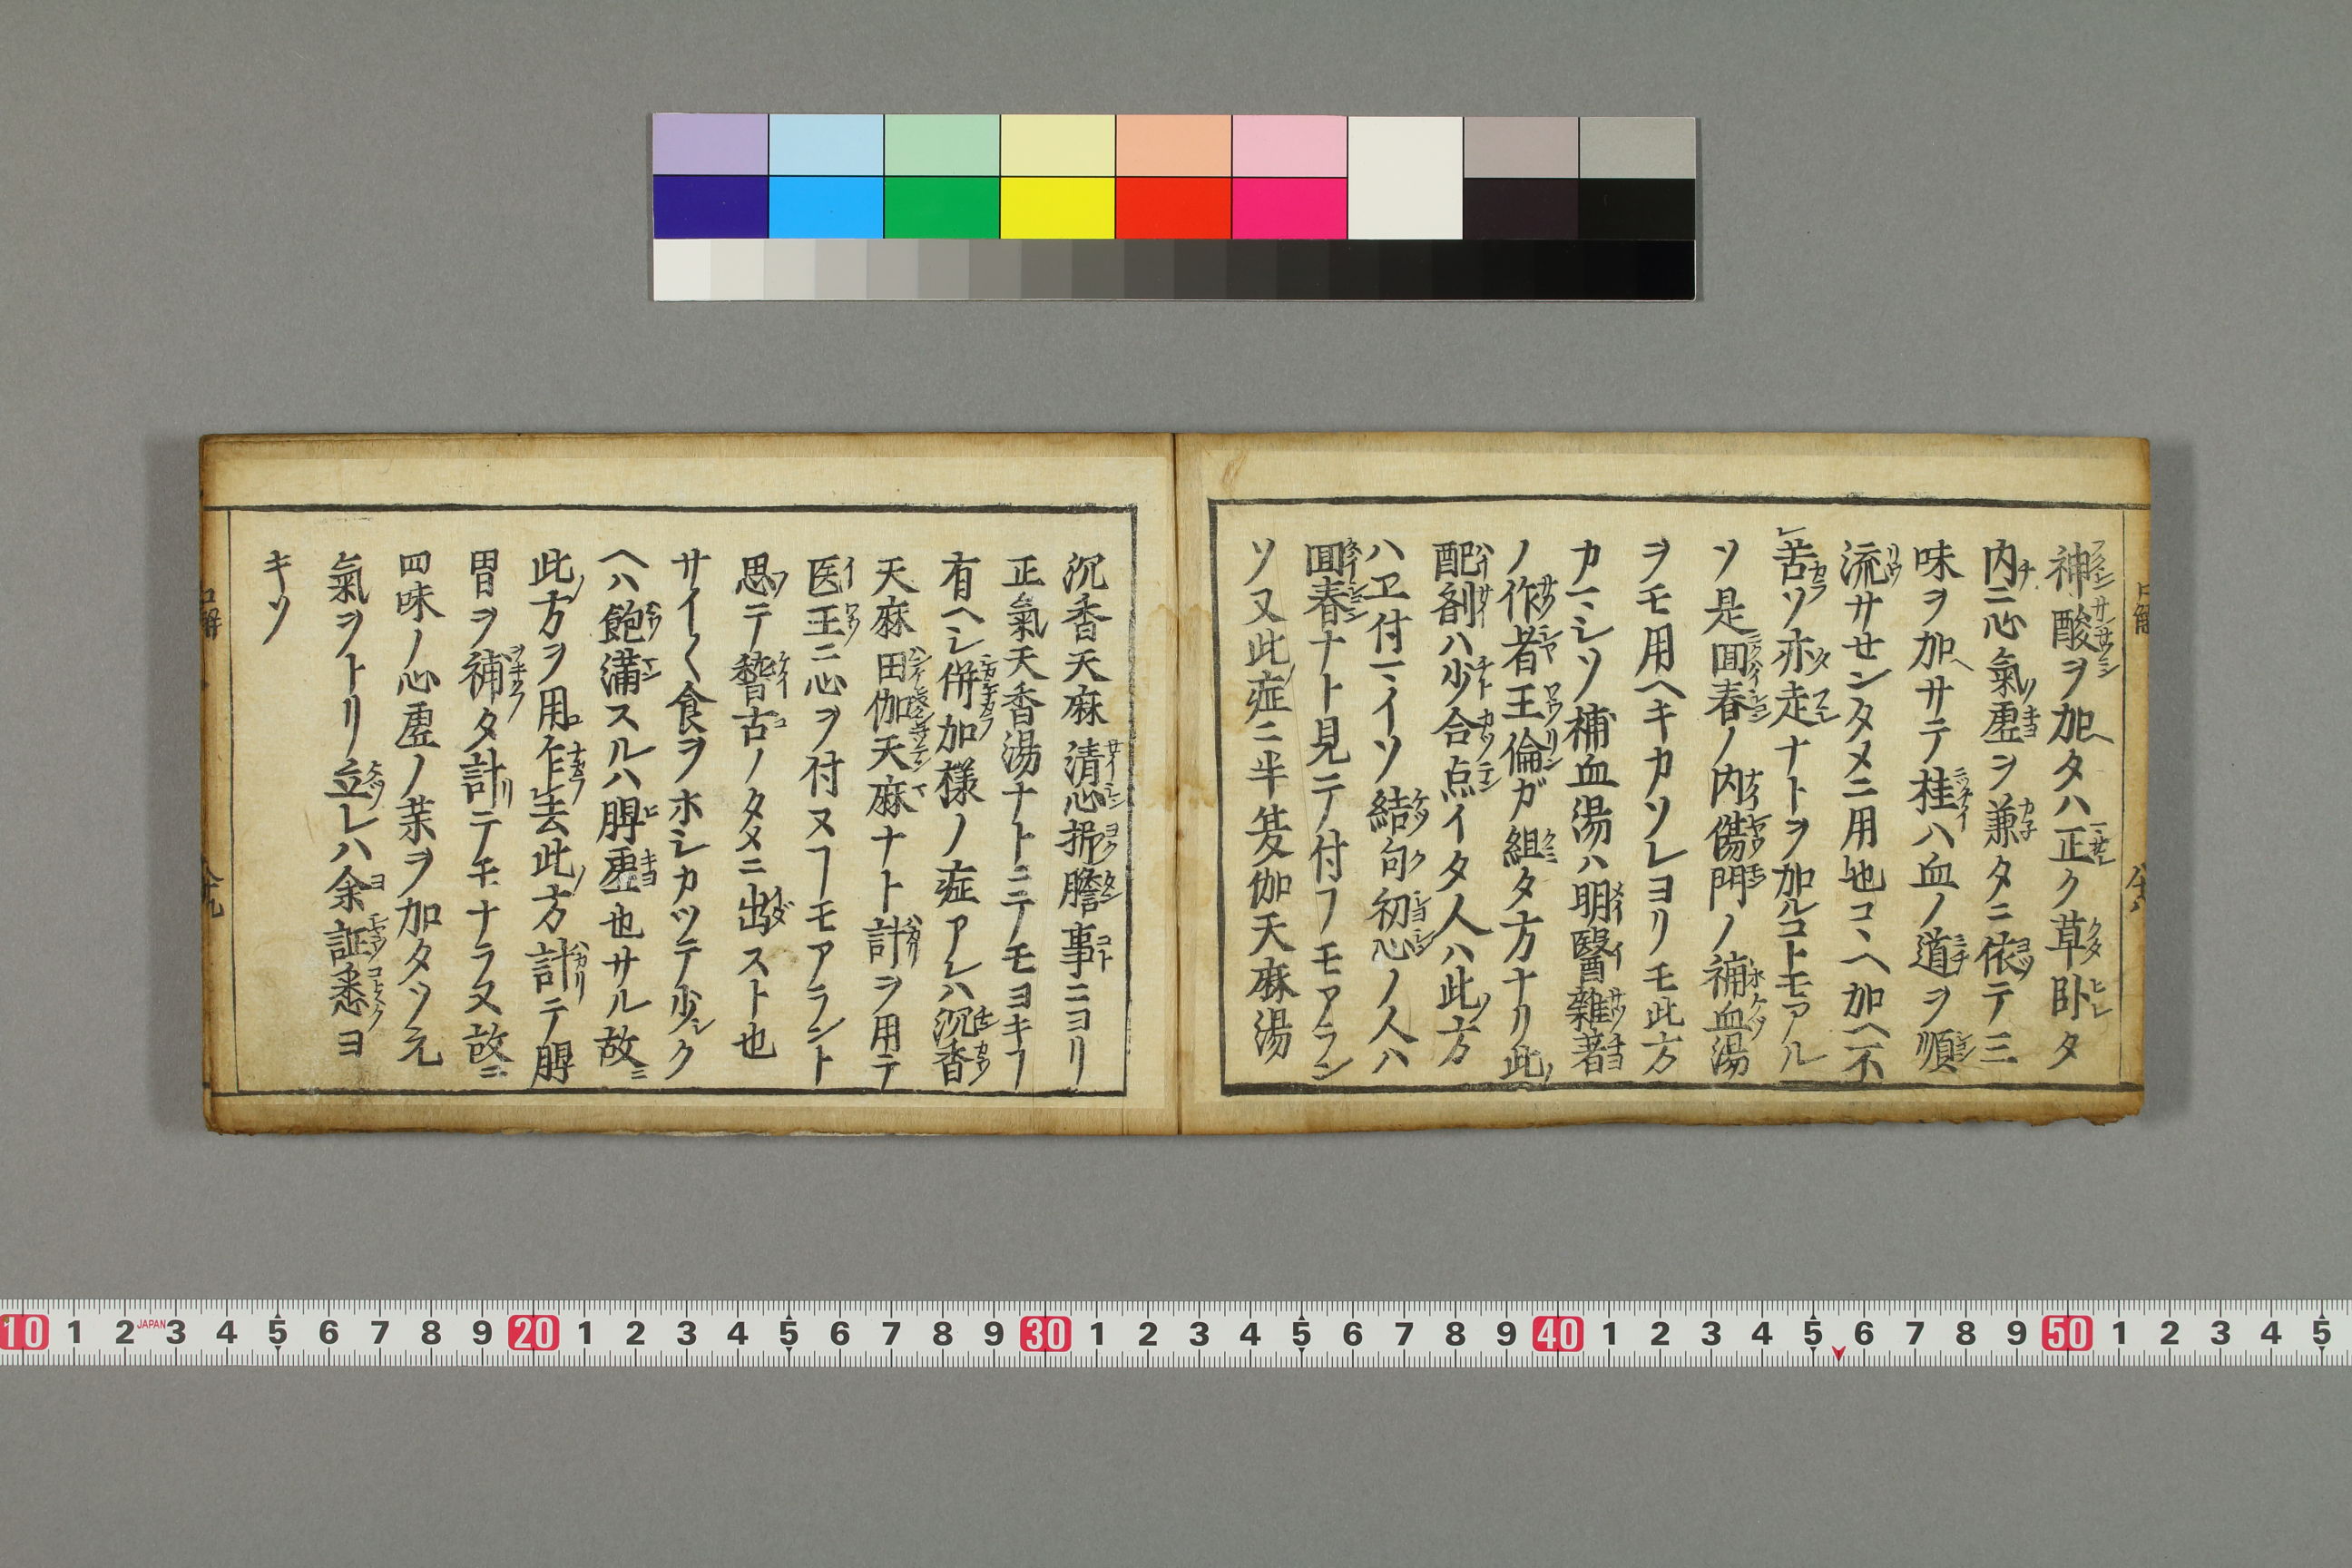 神酸ヲ加タハ正ク草臥タ
内ニ心氣虚ヲ兼タニ依テ三
味ヲ加サテ桂ハ血ノ道ヲ順
流サセンタメニ用也コヽヘ加ヘ不
苦ソ亦走ナトヲ加ルコトモアル
ソ是回春ノ内傷門ノ補血湯
ヲモ用ヘキカソレヨリモ此方
カミシソ補血湯ハ明醫雜著
ノ作者王倫ガ組タ方ナリ此
配剤ハ少合点イタ人ハ此方
ハヱ付マイソ結句初心ノ人ハ
回春ナト見テ付フモアラン
ソ又此症ニ半笈伽天麻湯
沉香天麻清心抑膽事ニヨリ
正氣天香湯ナトニテモヨキフ
有ヘシ併加様ノ症アレハ沉香
天麻田伽天麻ナト計ヲ用テ
医王ニ心ヲ付ヌフモアラント
思テ稽古ノタメニ出スト也
サイ〱食ヲホシカツテ少シク
ヘハ飽滿スルハ脾虚也サル故ニ
此方ヲ用乍去此方計テ脾
胃ヲ補タ計ニテモナラヌ故ニ
四味ノ心虚ノ薬ヲ加タソ元
氣ヲトリ立レハ余証悉ヨ
キソ
口解
JAPAN
10 1 2 3 4 5 6 7 8 9 20 1 2 3 4 5 6 7 8 9 30 1 2 3 4 5 6 7 8 9 40 1 2 3 4 5 6 7 8 9 50 1 2 3 4 5